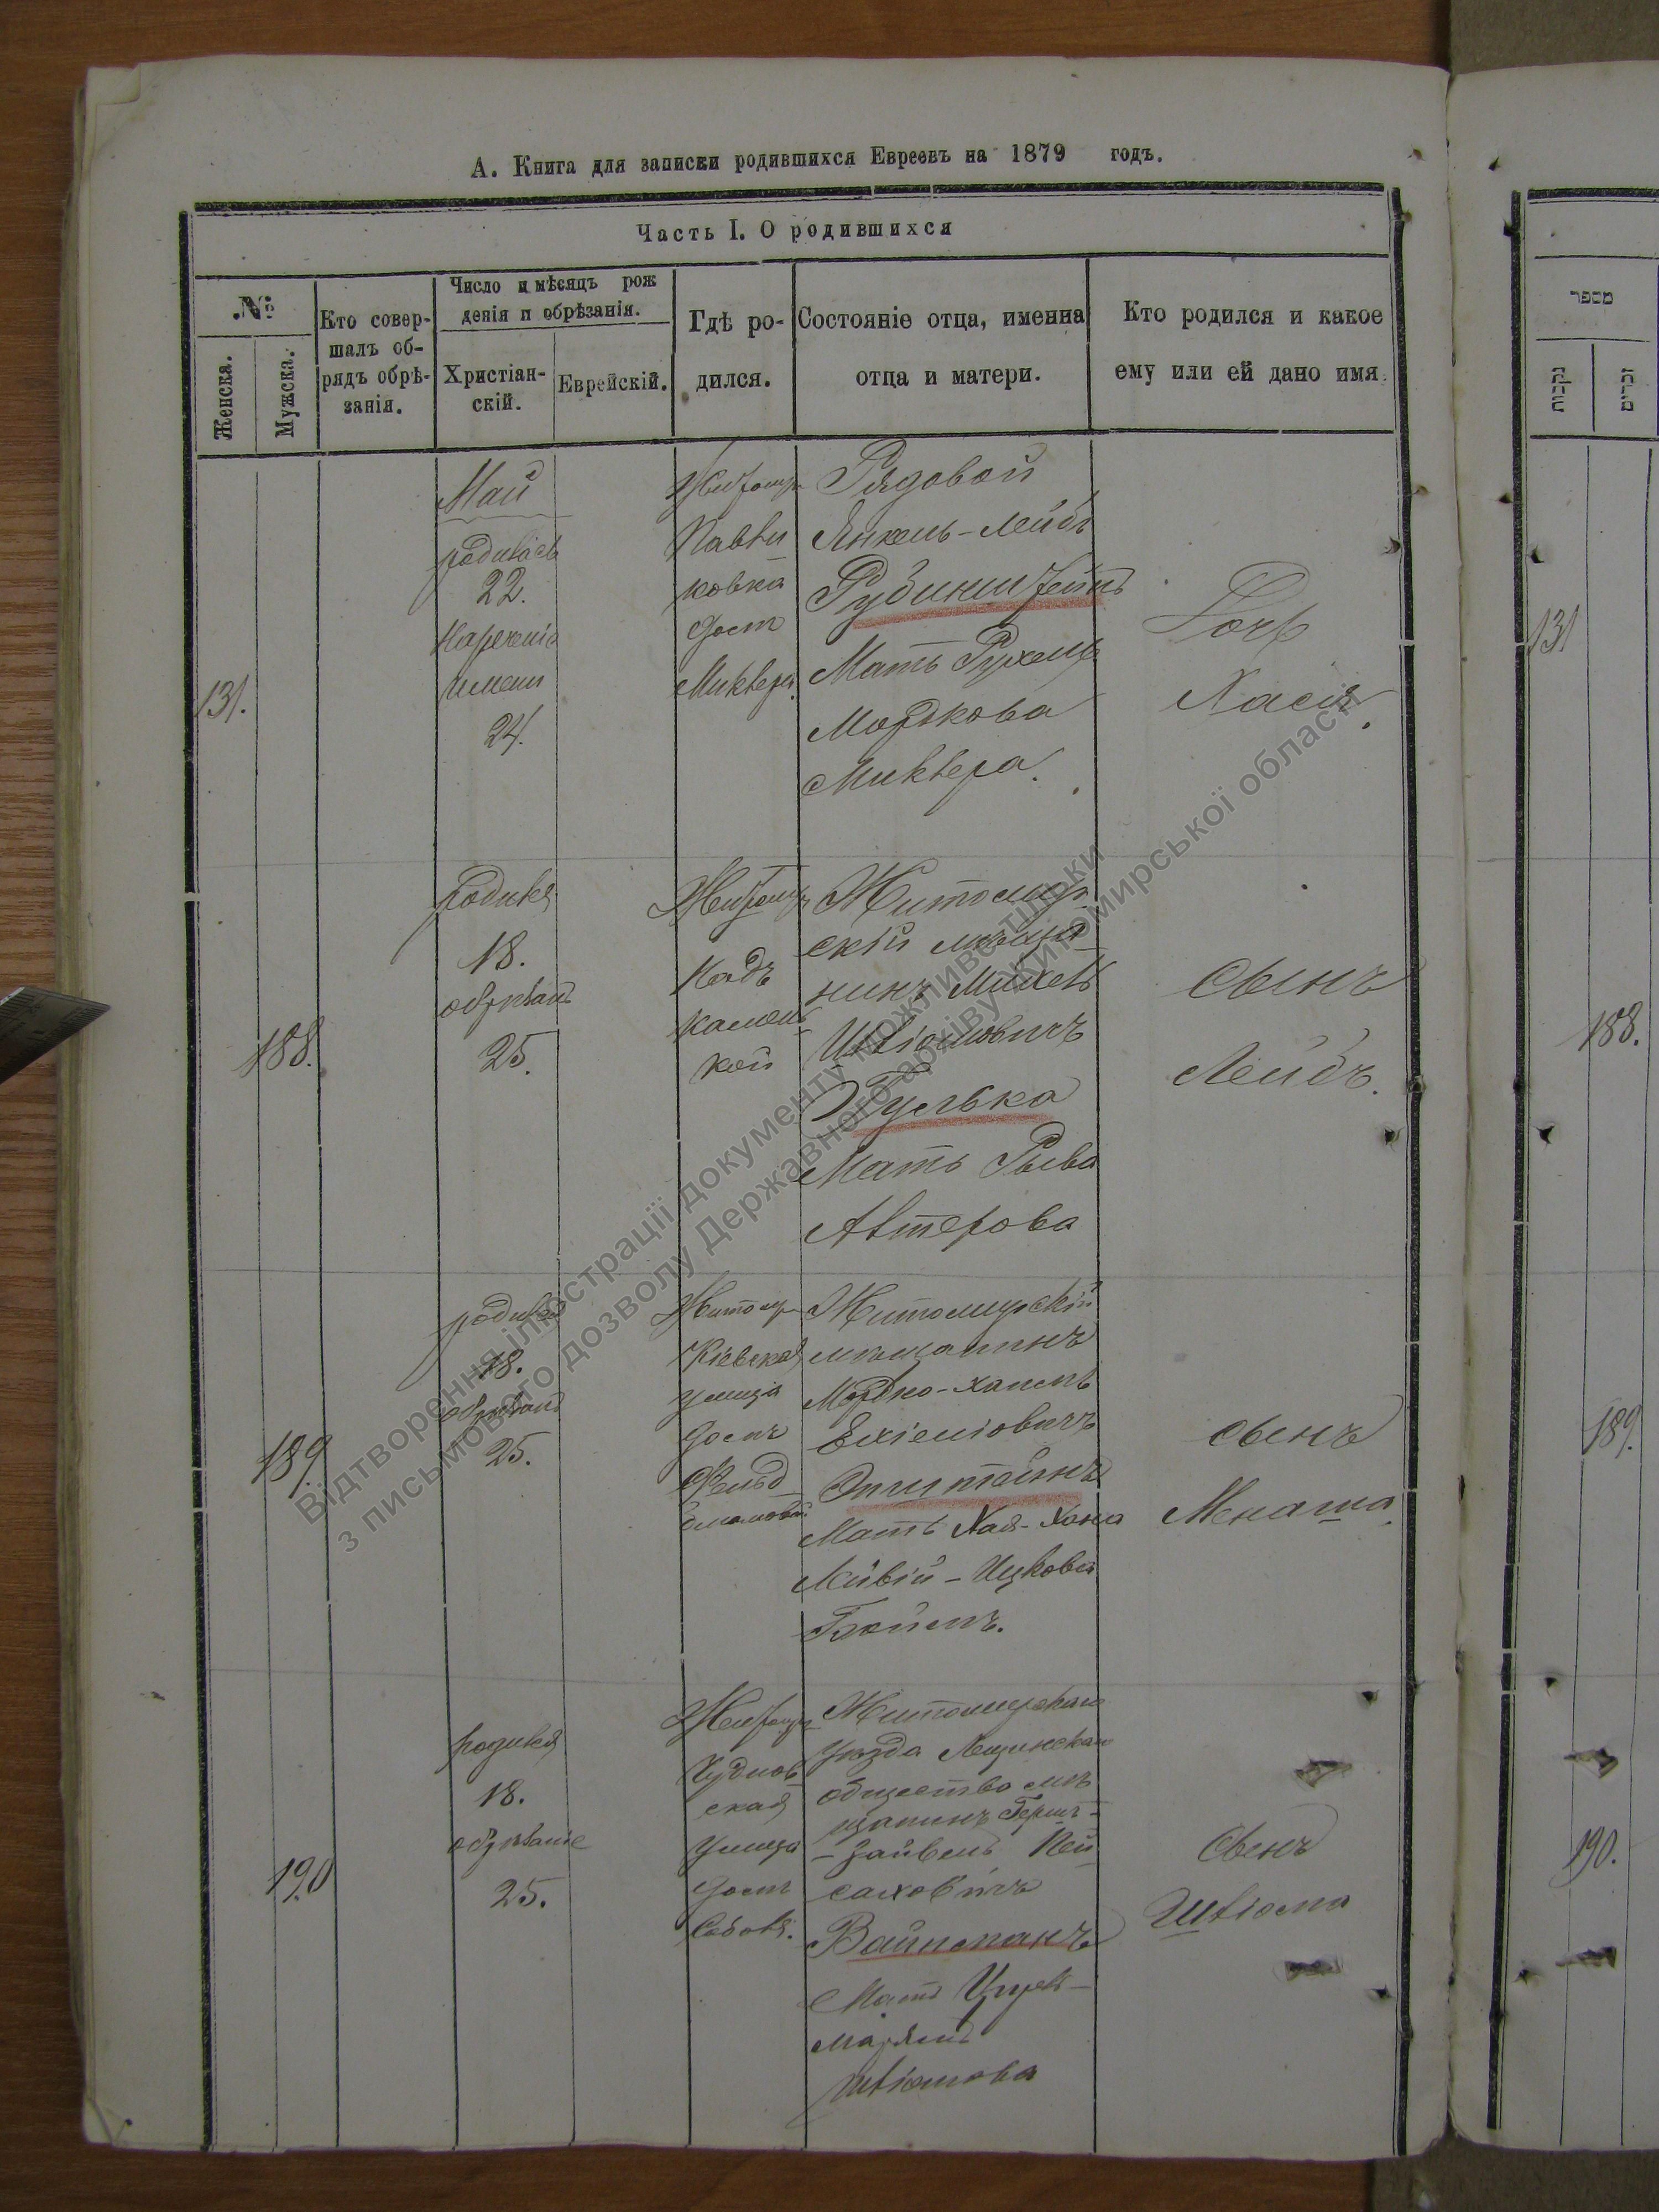 А. Книга для записки родившихся Евреевъ на 1879 годъ.
Часть I. О родившихся
№
Женска.
Мужска.
Кто совер-
шалъ об-
рядъ обрѣ-
занія.
Число и мѣсяцъ рож
денія и обрѣзанія.
Христіан-
скій.
Еврейскій.
Гдѣ ро-
дился.
Состояніе отца, именна
отца и матери.
Кто родился и какое
ему или ей дано имя.
131.
Май
родилась
22.
Нареченіе
имени
24.
Житомиръ
Павли
ковка
домъ
Миквера.
Рядовой
Янкель-Лейбъ
Рубинштейнъ
Мать Рухель
Мордкова
Миквера.
Дочь
Хася.
188.
родился
18.
обрѣзанъ
25.
Житомиръ
Надъ
Камен
кой
Житомир
скій мѣща
нинъ Михель
Шліомовичъ
Гулька
Мать Рыва
Алтерова
Сынъ
Лейбъ.
189.
родился
18.
обрѣзанъ
25.
Житомиръ
Кіевская
улица
домъ
Житомирскій
мѣщанинъ
Мордко-Хаимъ
Ехіеліовичъ
Эпштейнъ
Мать Хая-Хана
Ицкова
Сынъ
Менаша.
190
родился
18.
обрѣзаніе
25.
Житомиръ
Чуднов
ская
улица
домъ
Житомирскаго
уѣзда Лещинскаго
общество мѣ
щанинъ Гершъ-
-Зайвель Пей
саховичъ
Вайнманъ
Мать
Марьямъ
Шліомова
Сынъ
Шліома
מספר
נקבות
זכרים
131
188.
189.
190.
Відтворення ілюстрації документу можливе тільки
з письмового дозволу Державного архіву Житомирської області